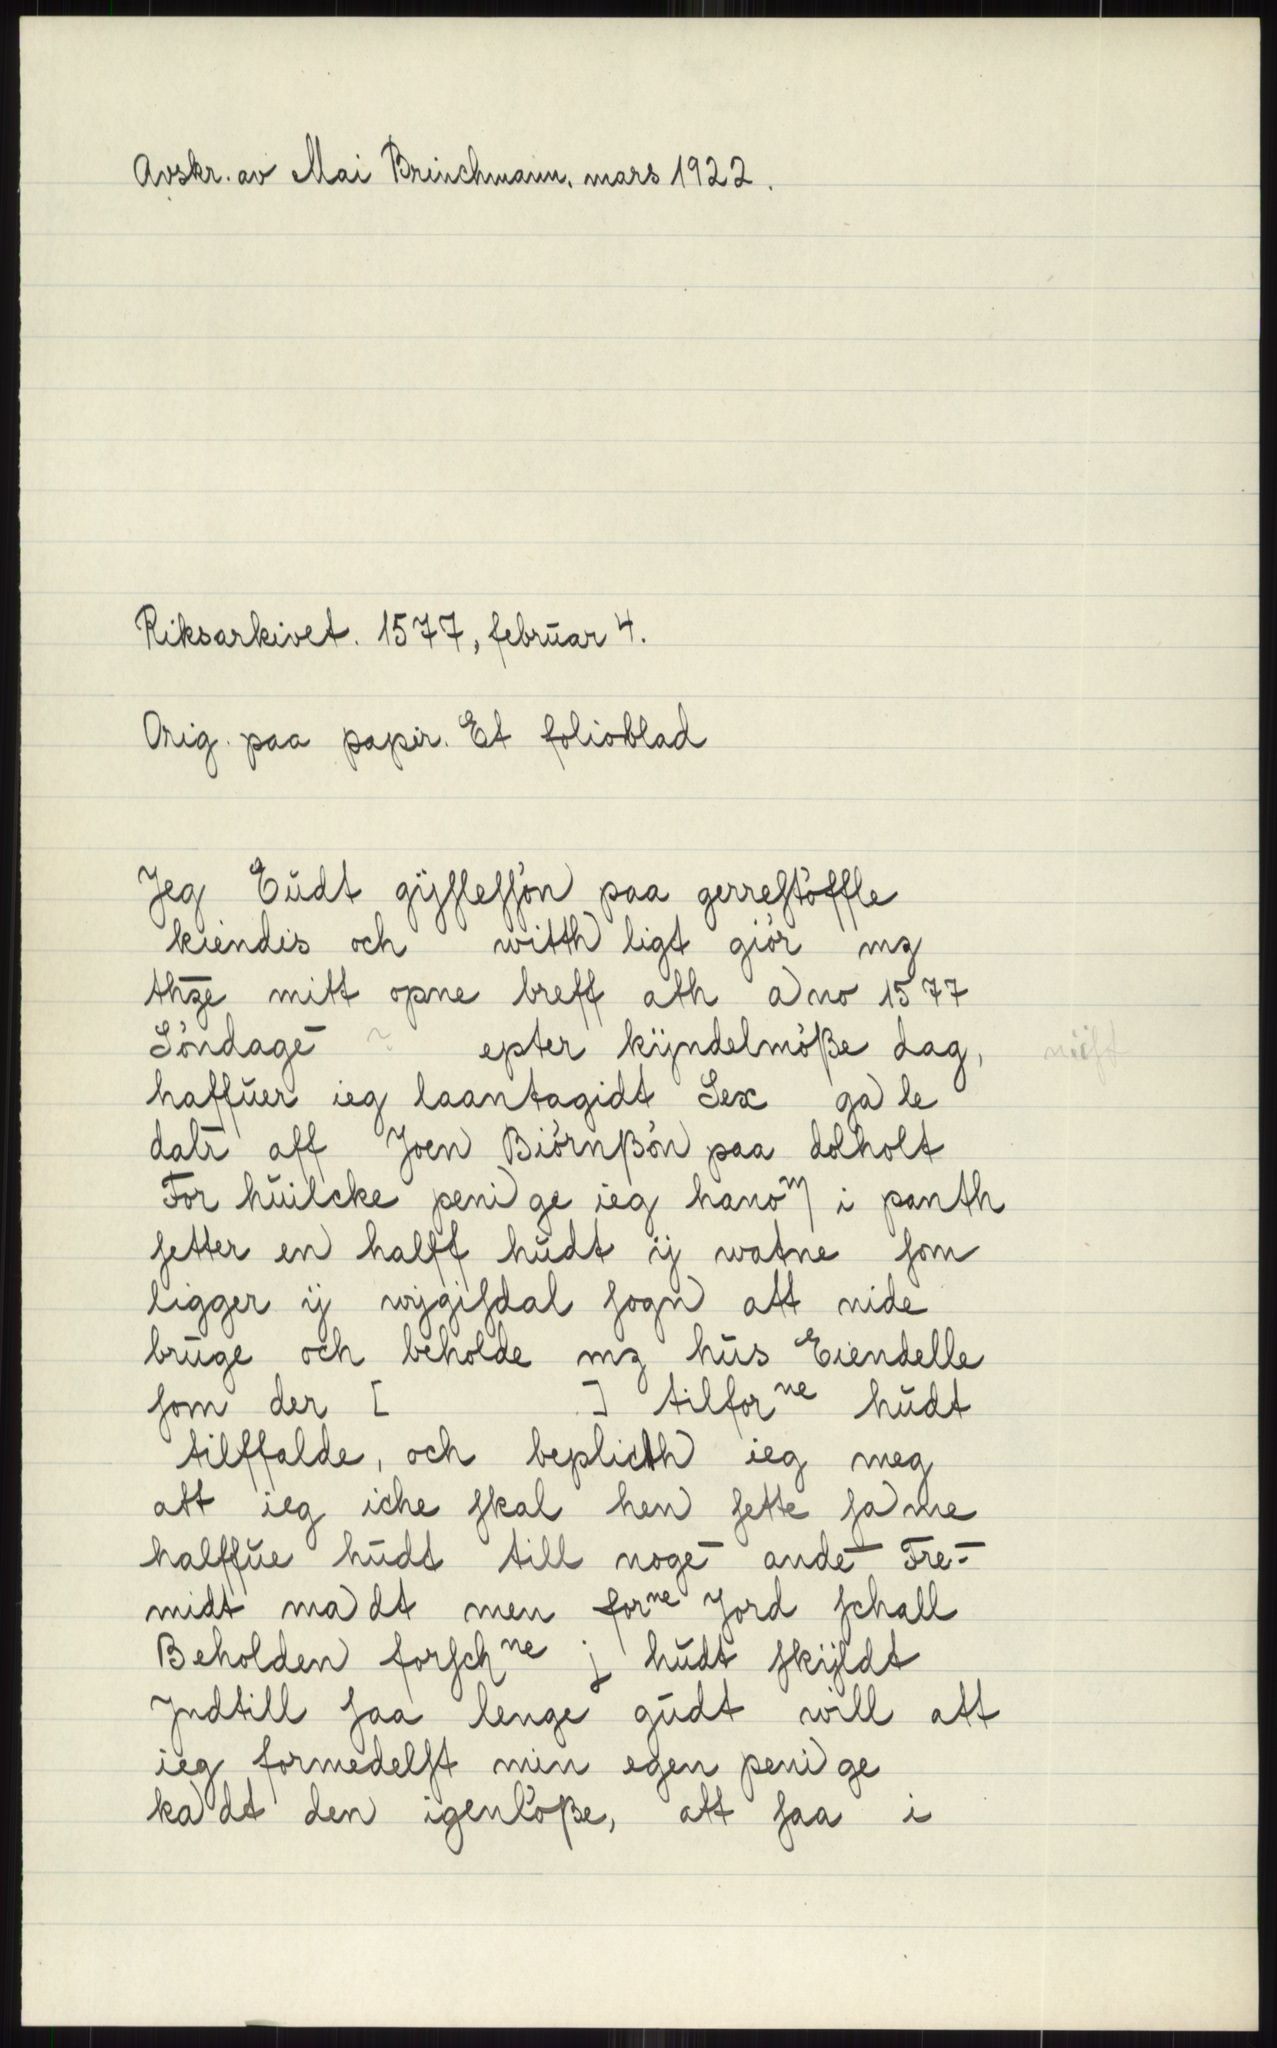 Avskr. av Mai Brinchmann, mars 1922.
Riksarkivet. 1577, februar 4.
Orig. paa papir. Et folioblad
Jeg Eŭdt gÿſleſſøn paa gerreſtøffle
kiendis och witth ligt giør mz
thze mitt opne breff ath a no 1577
Søndagē ? epter kÿndelmøße dag, nieſt
haffŭer ieg laantagidt Sex ga le
dalr aff Joen Biørnßøn paa dolholt
For hŭilcke peni ge ieg hanoᵐ i panth
ſetter en halff hŭdt ij watne ſom
ligger ij wÿgiſdal ſogn att nide
brŭge och beholde mz hŭs Eiendelle
ſom der [ ] tilforⁿᵉ hŭdt
tilffalde, och beplicth ieg meg
att ieg iche ſkal hen ſette ſa me
halffŭe hŭdt till nogē andē Fre-
midt ma dt men forⁿᵉ Jord ſchall
Beholden forſchⁿᵉ j hŭdt ſkÿldt
Jndtill ſaa lenge gŭdt will att
ieg formedelſt min egen peni ge
ka dt den igenløße, att ſaa i